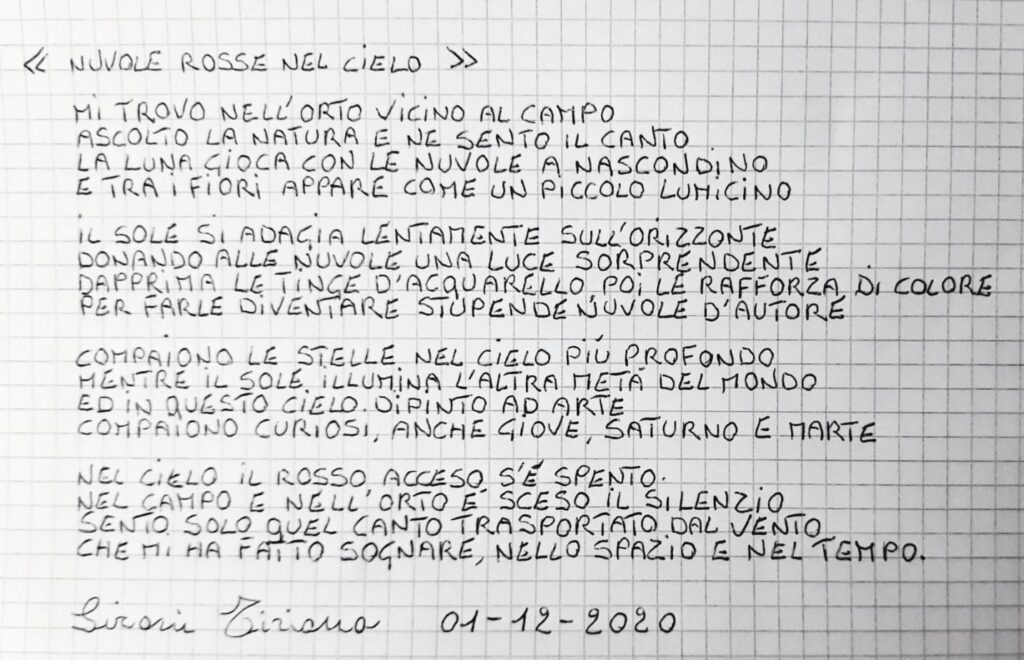 « NUVOLE ROSSE NEL CIELO »
MI TROVO NELL'ORTO VICINO AL CAMPO
ASCOLTO LA NATURA E NE SENTO IL CANTO
LA LUNA GIOCA CON LE NUVOLE A NASCONDINO
E TRA I FIORI APPARE COME UN PICCOLO LUMICINO
IL SOLE SI ADAGIA LENTAMENTE SULL'ORIZZONTE
DONANDO ALLE NUVOLE UNA LUCE SORPRENDENTE
DAPPRIMA LE TINGE D'ACQUARELLO POI LE RAFFORZA DI COLORE
PER FARLE DIVENTARE STUPENDE NUVOLE D'AUTORE
COMPAIONO LE STELLE NEL CIELO PIÚ PROFONDO
MENTRE IL SOLE ILLUMINA L'ALTRA METÁ DEL MONDO
ED IN QUESTO CIELO DIPINTO AD ARTE
COMPAIONO CURIOSI, ANCHE GIOVE, SATURNO E MARTE
NEL CIELO IL ROSSO ACCESO S'É SPENTO.
NEL CAMPO E NELL'ORTO É SCESO IL SILENZIO
SENTO SOLO QUEL CANTO TRASPORTATO DAL VENTO
CHE MI HA FATTO SOGNARE, NELLO SPAZIO E NEL TEMPO.
Sironi Tiziana 01-12-2020